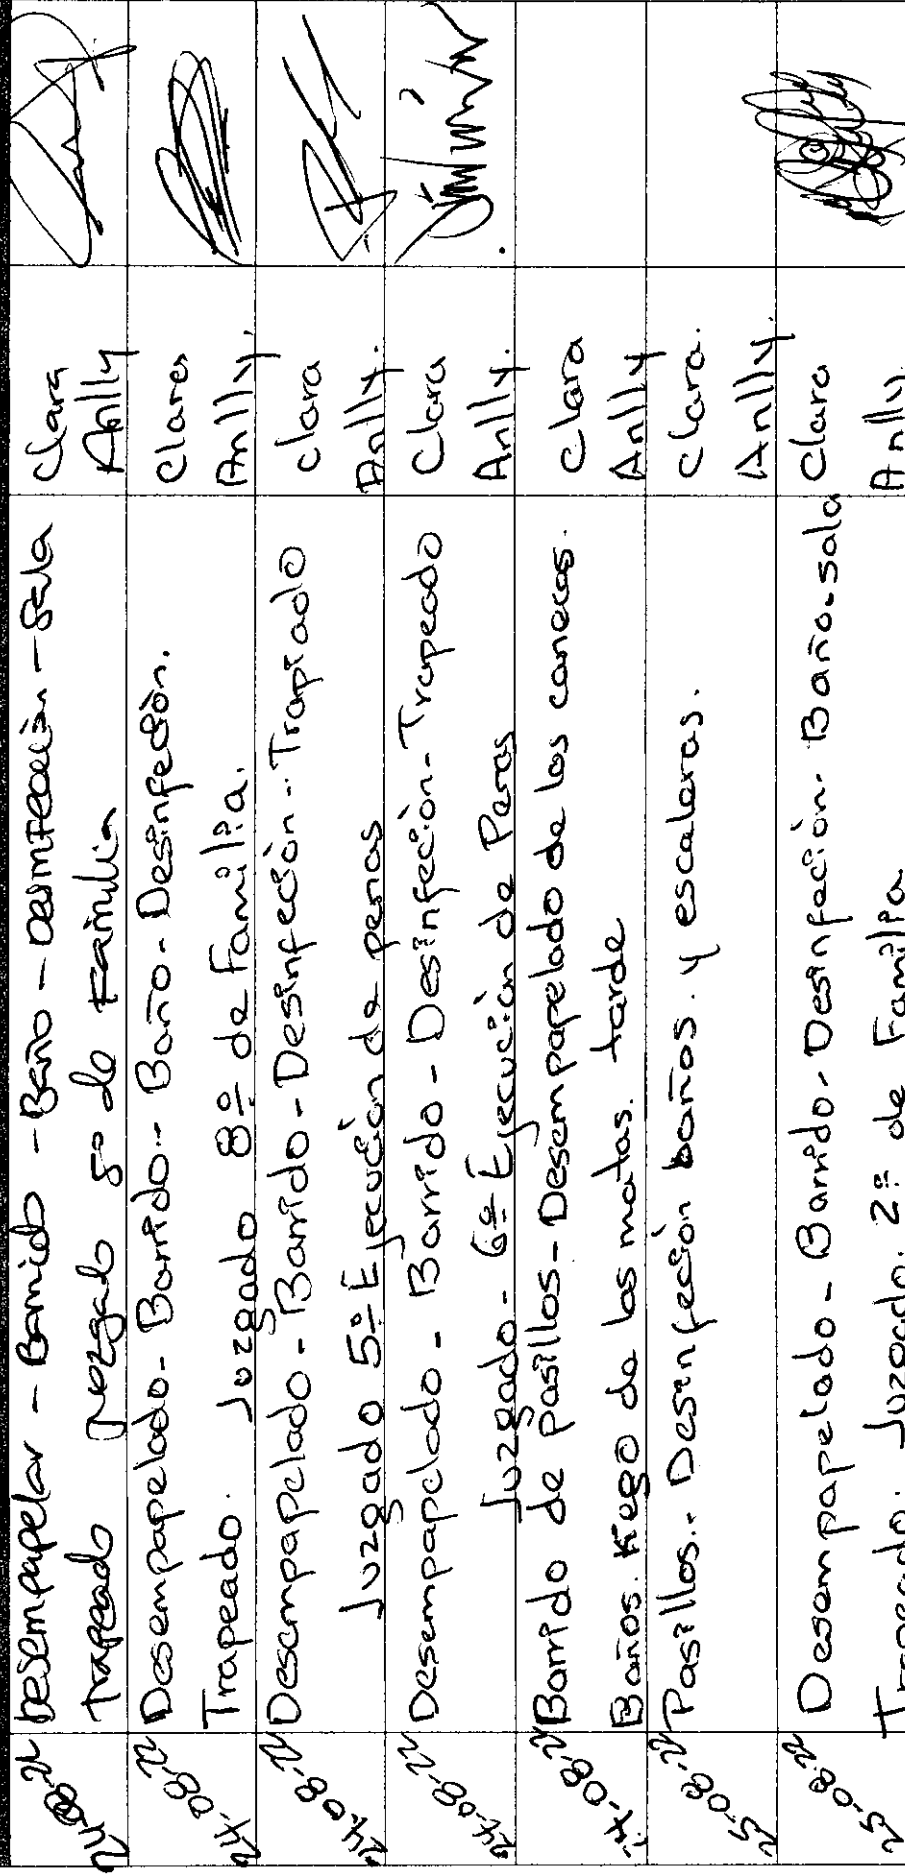 24-08-22 Desempapelar - Barrido - Baño - Desinfección - Sala Clara
trapeado Juzgado 5º de Familia Anlly
24-08-22 Desempapelado - Barrido - Baño - Desinfeción. Clara
Trapeado. Juzgado 8º de Familia. Anlly.
24-08-22 Desempapelado - Barrido - Desinfeción - Trapiado Clara
Juzgado 5º Ejecución de penas Anlly.
24-08-22 Desempapelado - Barrido - Desinfeción - Trapeado Clara
Juzgado - 6º Ejecución de Penas Anlly.
24-08-22 Barrido de pasillos - Desempapelado de las canecas. Clara
Baños. Riego de las matas. tarde Anlly
25-08-22 Pasillos. - Desinfeción baños. y escaleras. Clara.
Anlly.
25-08-22 Desempapelado - Barrido - Desinfeción. Baño. sala Clara
Trapeado. Juzgado. 2º de Familia Anlly.